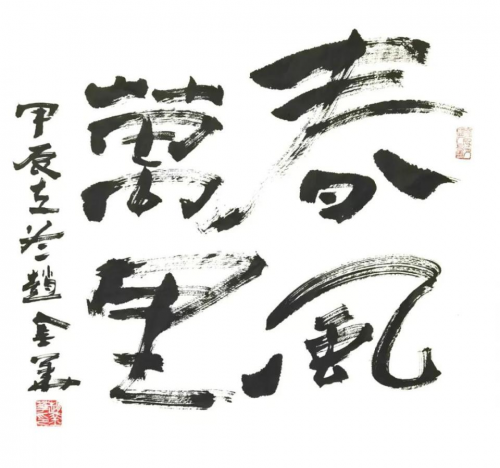 春風
萬里
甲辰立冬趙金華